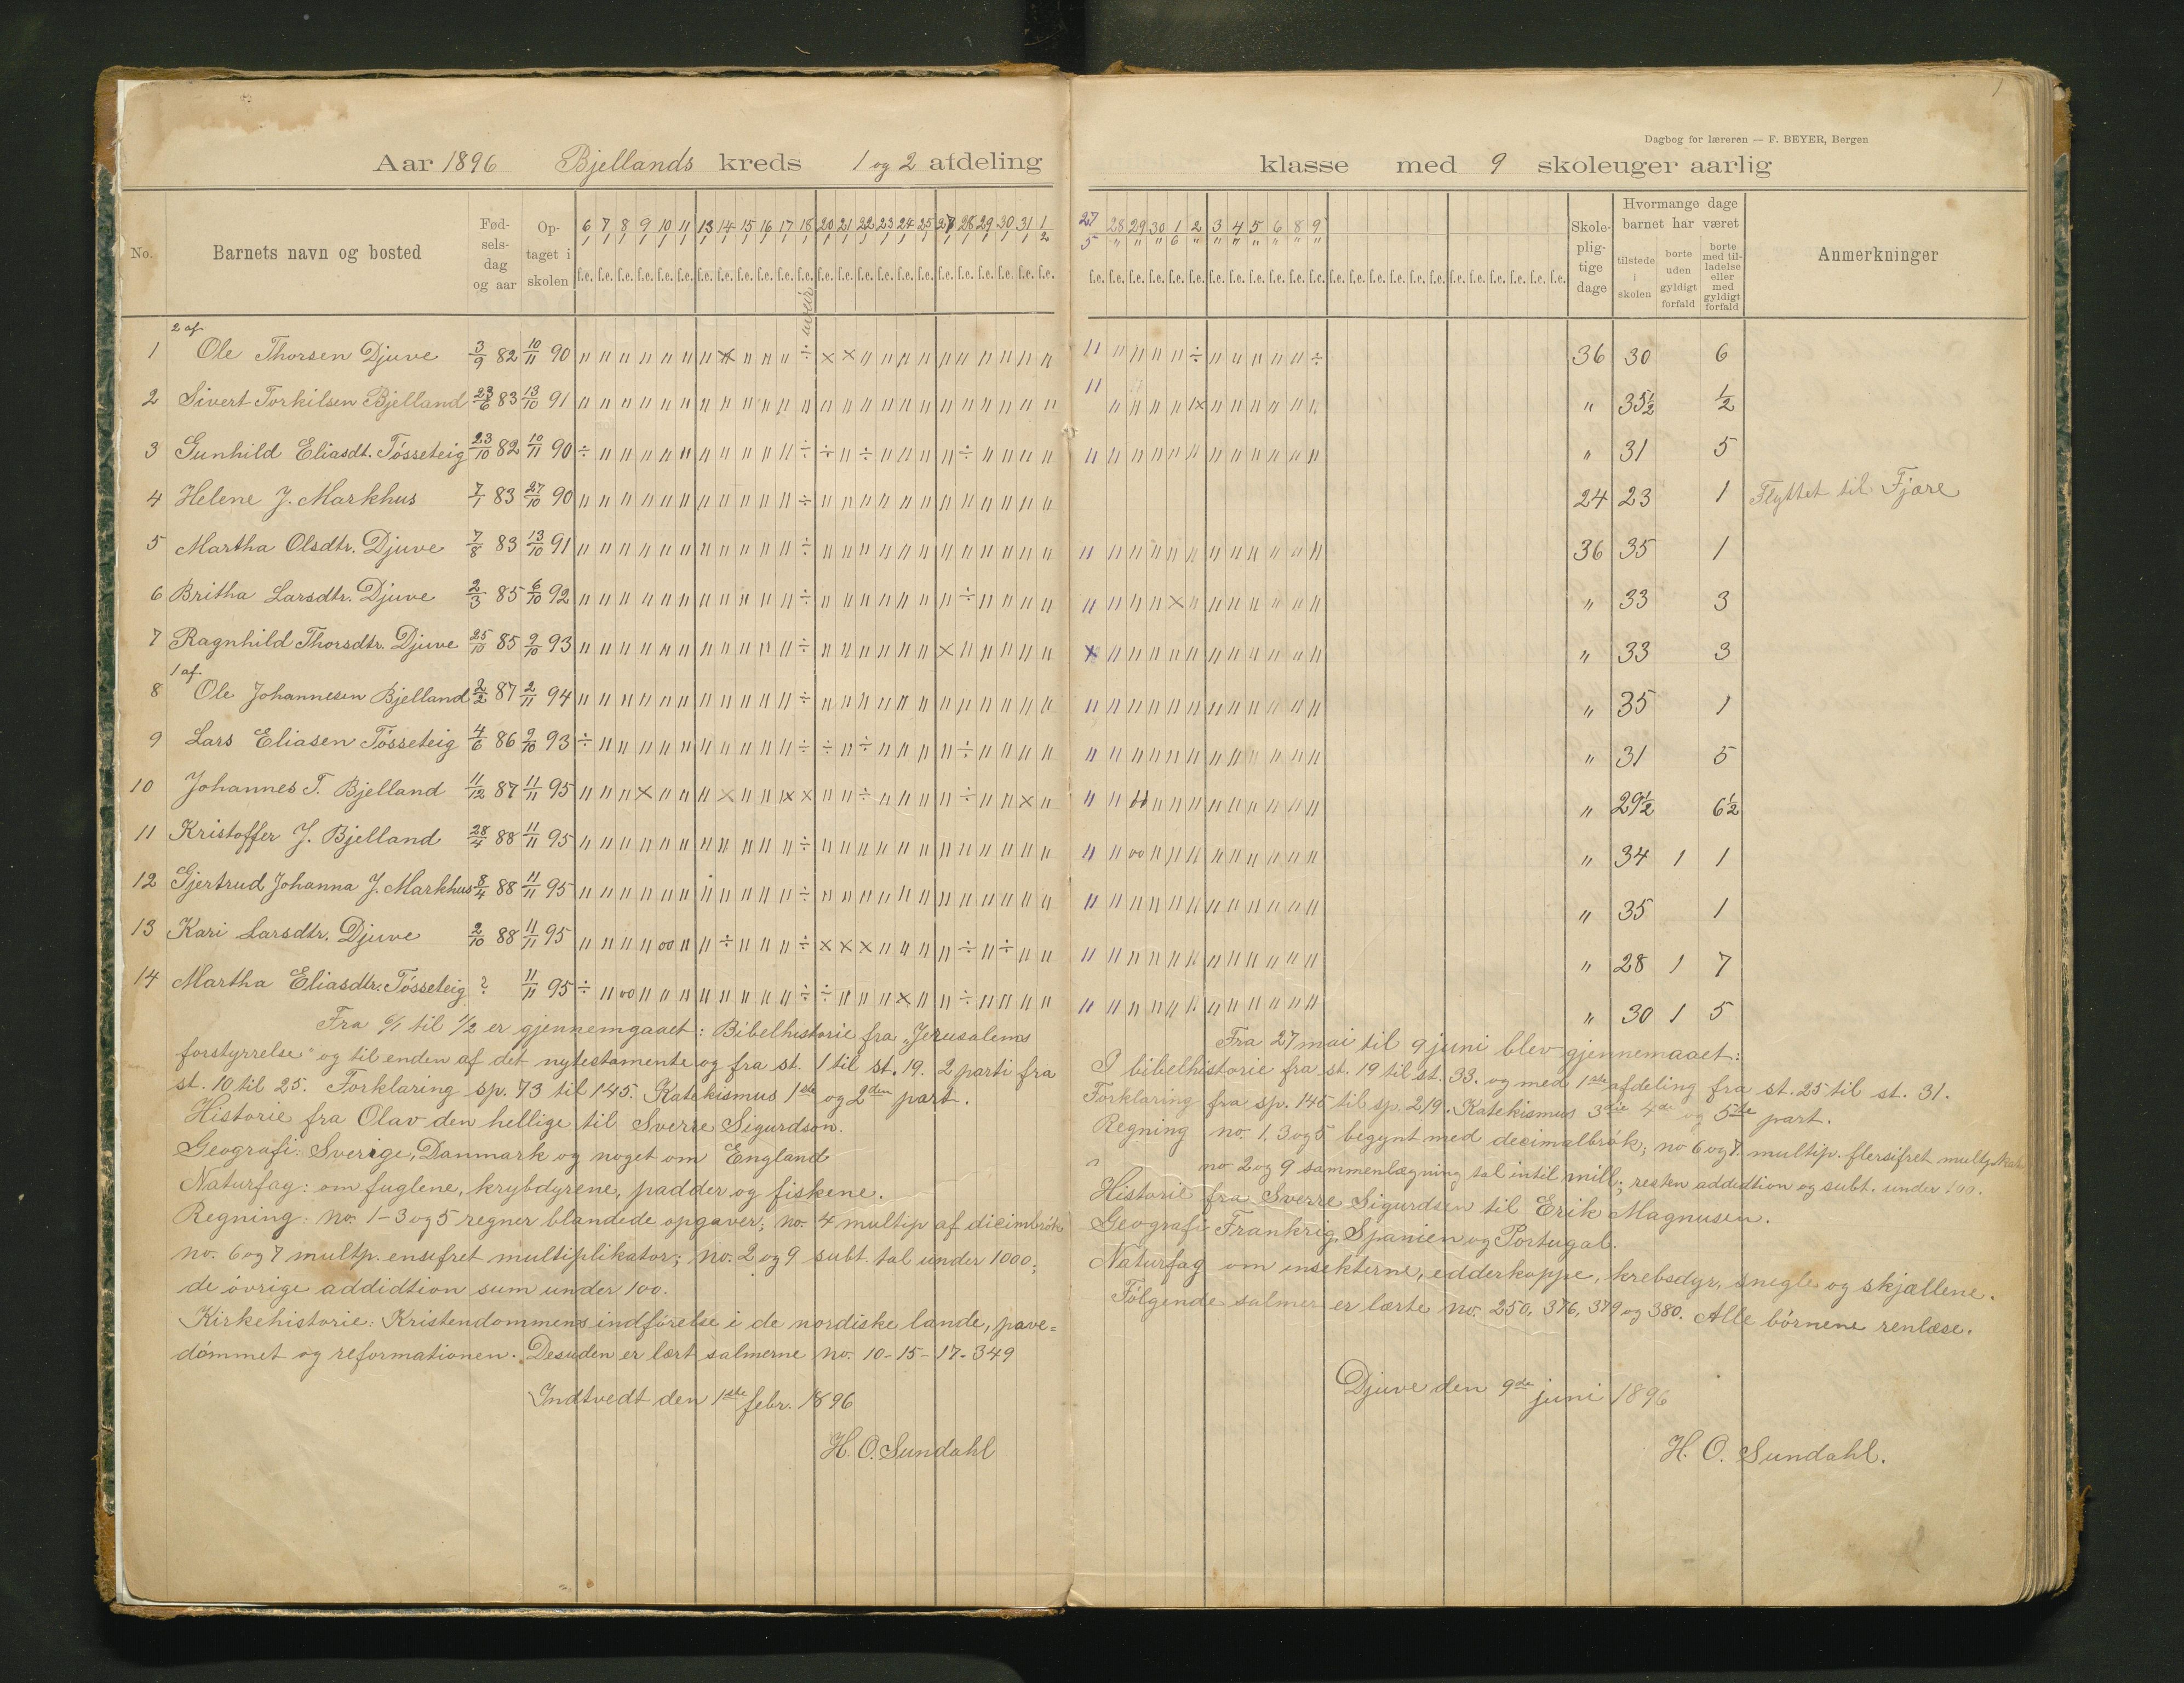 Dagbog for læreren — F. BEYER, Bergen
Aar 1896 Bjellands kreds 1 og 2 afdeling klasse med 9 skoleuger aarlig
No. Barnets navn og bosted Fødselsdag og aar Optaget i skolen 6 7 8 9 10 11 13 14 15 16 17 18 20 21 22 23 24 25 27 28 29 30 31 1/2 27/5 28 29 30 1/6 2 3 4 5 6 8 9 Skolepligtige dage Hvormange dage barnet har været tilstede i skolen borte uden gyldigt forfald borte med tilladelse eller med gyldigt forfald Anmerkninger
2 af
1 Ole Thorsen Djuve 3/9 82 10/11 90 36 30 6
2 Sivert Torkilsen Bjelland 23/6 83 13/10 91 " 35½ ½
3 Gunhild Eliasdt. Tósseteig 23/10 82 10/11 90 " 31 5
4 Helene J. Markhus 7/1 83 27/10 90 24 23 1 Flyttet til Fjære
5 Martha Olsdtr. Djuve 7/8 83 13/10 91 36 35 1
6 Britha Larsdtr. Djuve 2/3 85 6/10 92 " 33 3
7 Ragnhild Thorsdtr. Djuve 25/10 85 9/10 93 " 33 3
1 af
8 Ole Johannesen Bjelland 2/2 87 2/11 94 " 35 1
9 Lars Eliasen Tósseteig 4/6 86 9/10 93 " 31 5
10 Johannes T. Bjelland 11/12 87 11/11 95 " 29½ 6½
11 Kristoffer J. Bjelland 28/4 88 11/11 95 " 34 1 1
12 Gjertrud Johanna J. Markhus 8/4 88 11/11 95 " 35 1
13 Kari Larsdtr. Djuve 2/10 88 11/11 95 " 28 1 7
14 Martha Eliasdtr. Tósseteig ? 11/11 95 " 30 1 5
Fra 6/1 til 1/2 er gjennemgaaet: Bibelhistorie fra „Jerusalems
forstyrrelse" og til enden af det nytestamente og fra st. 1 til st. 19. 2 parti fra
st. 10 til 25. Forklaring sp. 73 til 145. Katekismus 1ste og 2den part.
Historie fra Olav den hellige til Sverre Sigurdson.
Geografi: Sverige, Danmark og noget om England
Naturfag: om fuglene, krybdyrene, padder og fiskene.
Regning: no. 1-3 og 5 regner blandede opgaver; no. 4 multip af dicimbrók
no. 6 og 7 multp. ensifret multiplikator; no. 2 og 9 subt. tal under 1000;
de óvrige addidtion sum under 100.
Kirkehistorie: Kristendommens indfórelse i de nordiske lande, pave=
dómmet og reformationen. Desuden er lært salmerne no. 10-15-17-349
Indtvedt den 1ste febr. 1896
H. O. Sundahl
Fra 27 mai til 9 juni blev gjennemaaet:
I bibelhistorie fra st. 19 til st. 33. og med 1ste afdeling fra st. 25 til st. 31.
Forklaring fra sp. 145 til sp. 219. Katekismus 3die 4de og 5te part.
Regning no. 1, 3 og 5 begynt med decimalbrók; no 6 og 7. multip. flersifret
no 2 og 9 sammenlægning tal intil mill.; resten addidtion og subt. under 100.
Historie fra Sverre Sigurdsen til Erik Magnusen.
Geografi Frankrig, Spanien og Portugal.
Naturfag om insekterne, edderkoppe, krebsdyr, snegle og skjællene.
Fólgende salmer er lærte no. 250, 376, 379 og 380. Alle bórnene renlæse.
Djuve den 9de juni 1896
H. O. Sundahl.